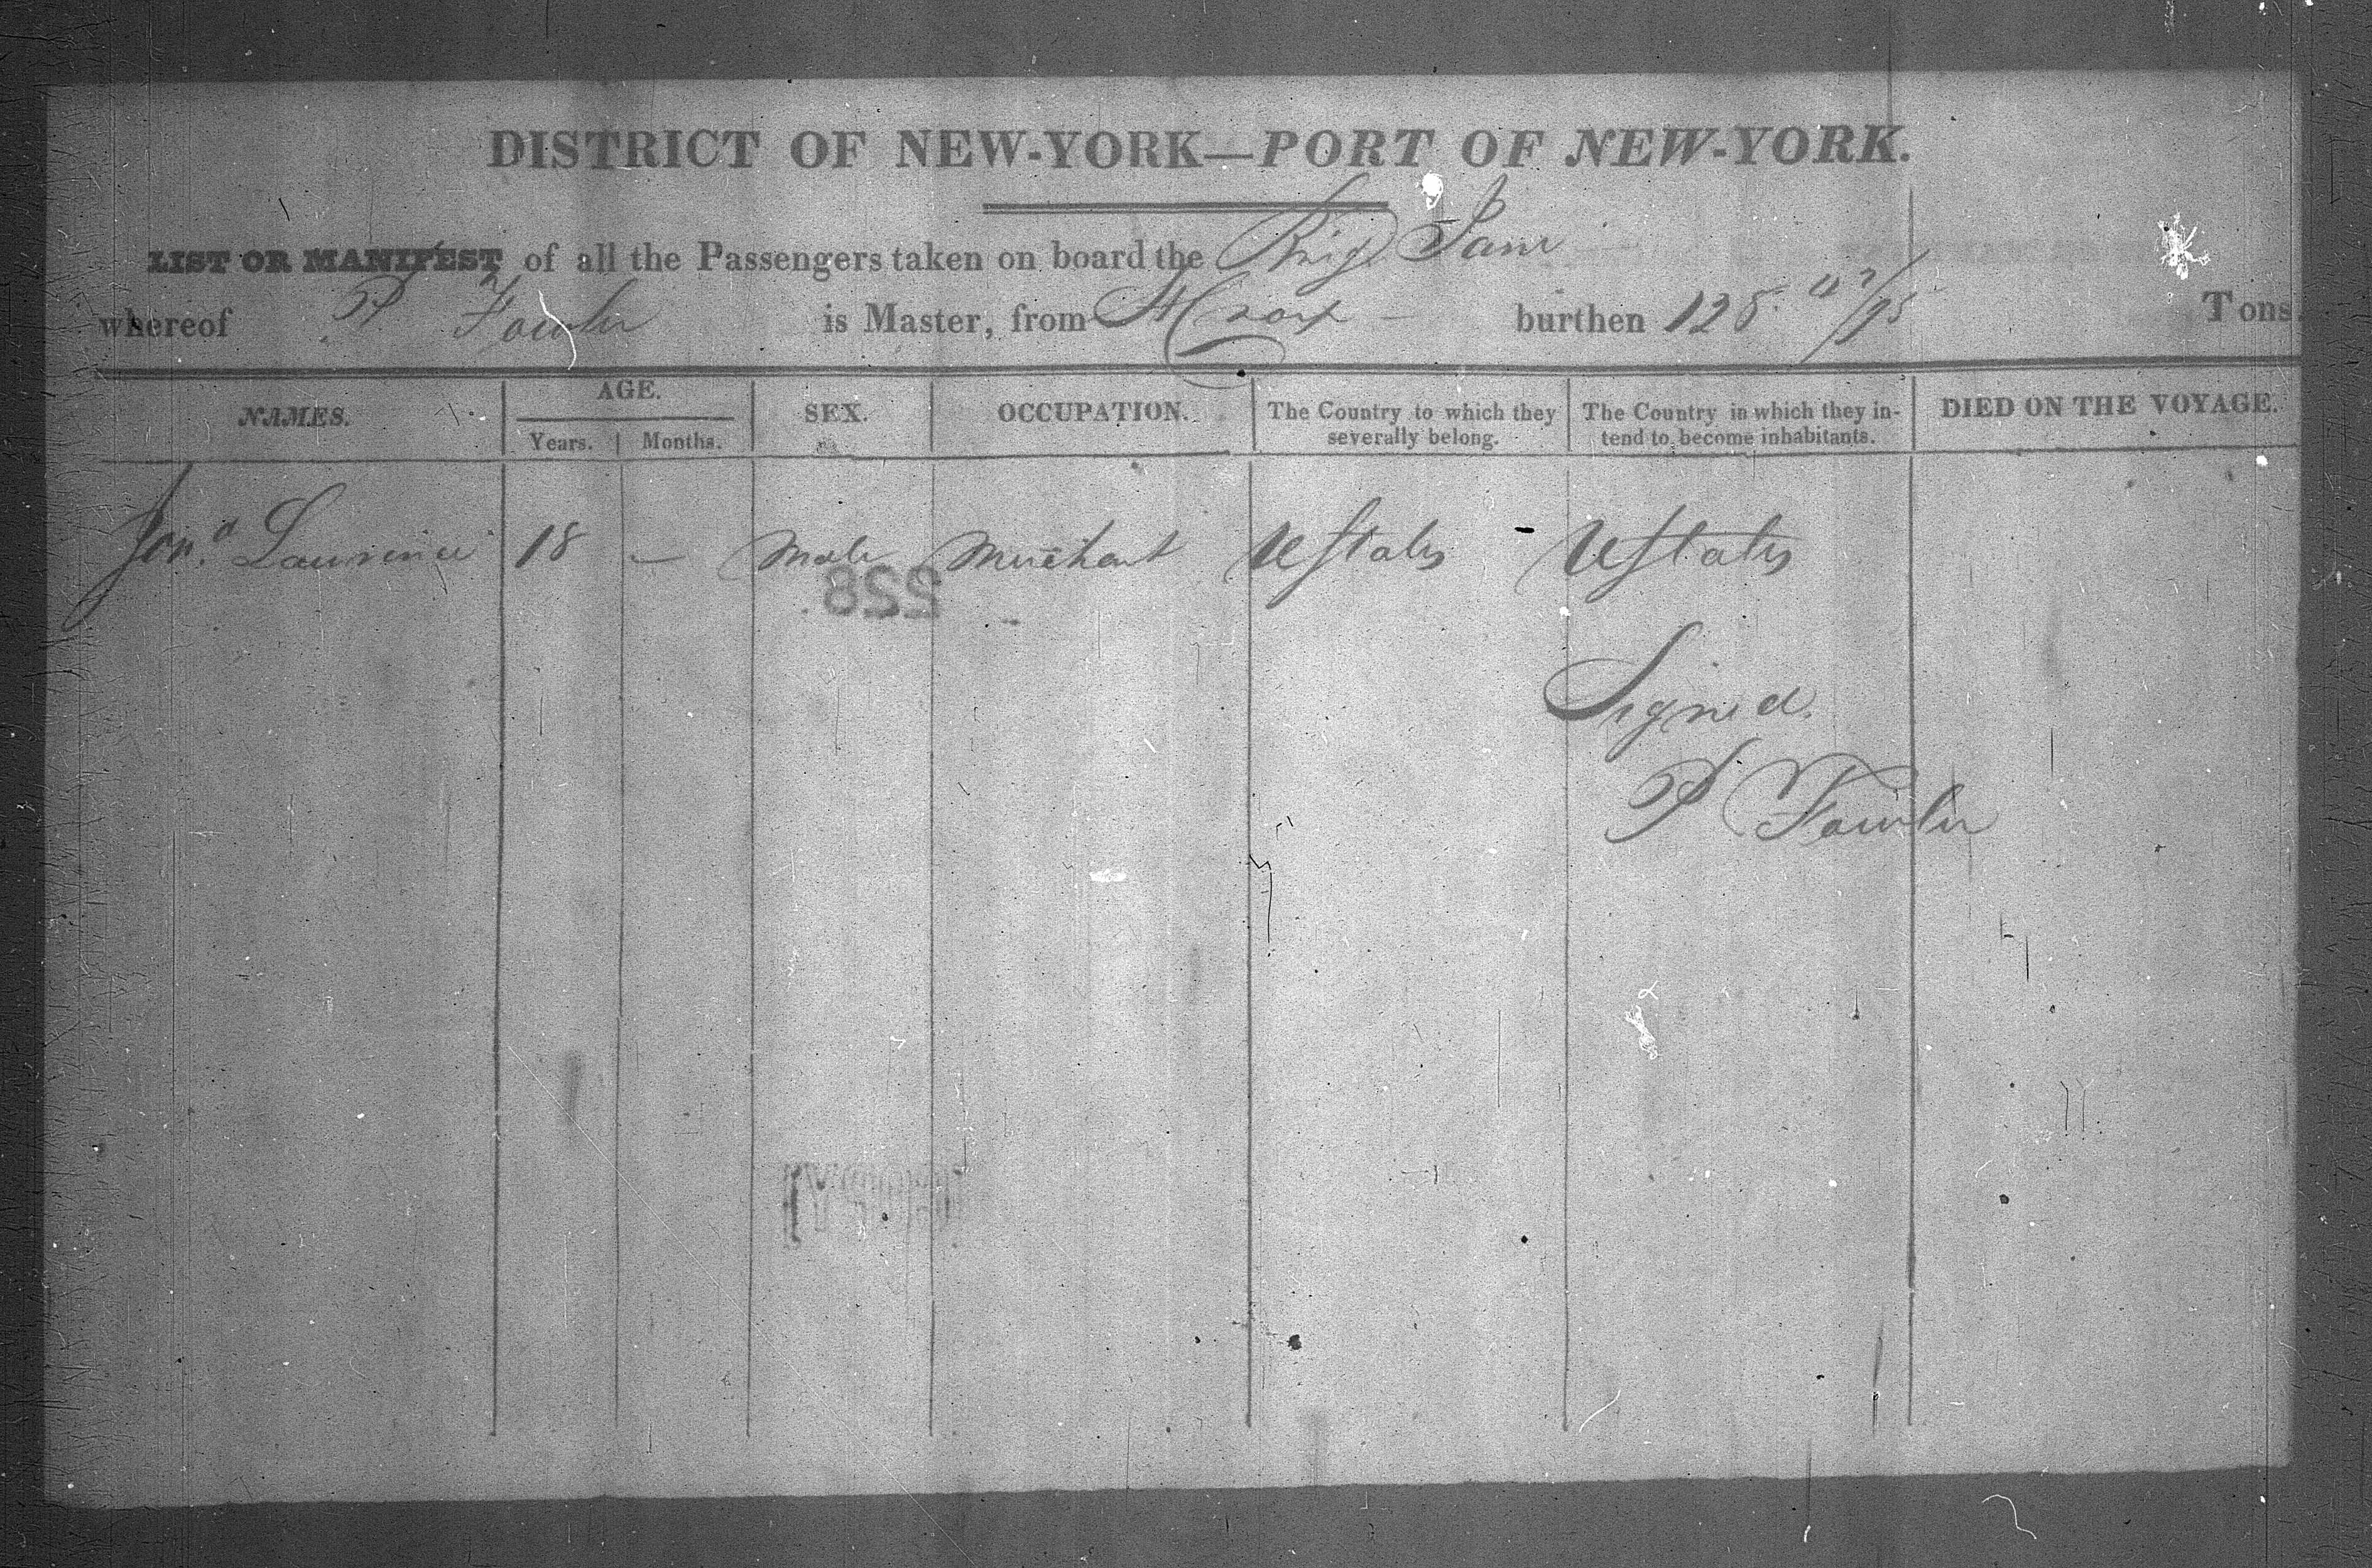 DISTRICT OF NEW-YORK—PORT OF NEW-YORK.
LIST OR MANIFEST of all the Passengers taken on board the Brig Jane
whereof P Fowler is Master, from St Croix – burthen 128 42/95 Tons.
NAMES. AGE. SEX. OCCUPATION. The Country to which they severally belong. The Country in which they intend to become inhabitants. DIED ON THE VOYAGE.
Years. Months.
Jona. Lawrence 18 – Male Merchant UStates – UStates
228
Signed
P Fowler